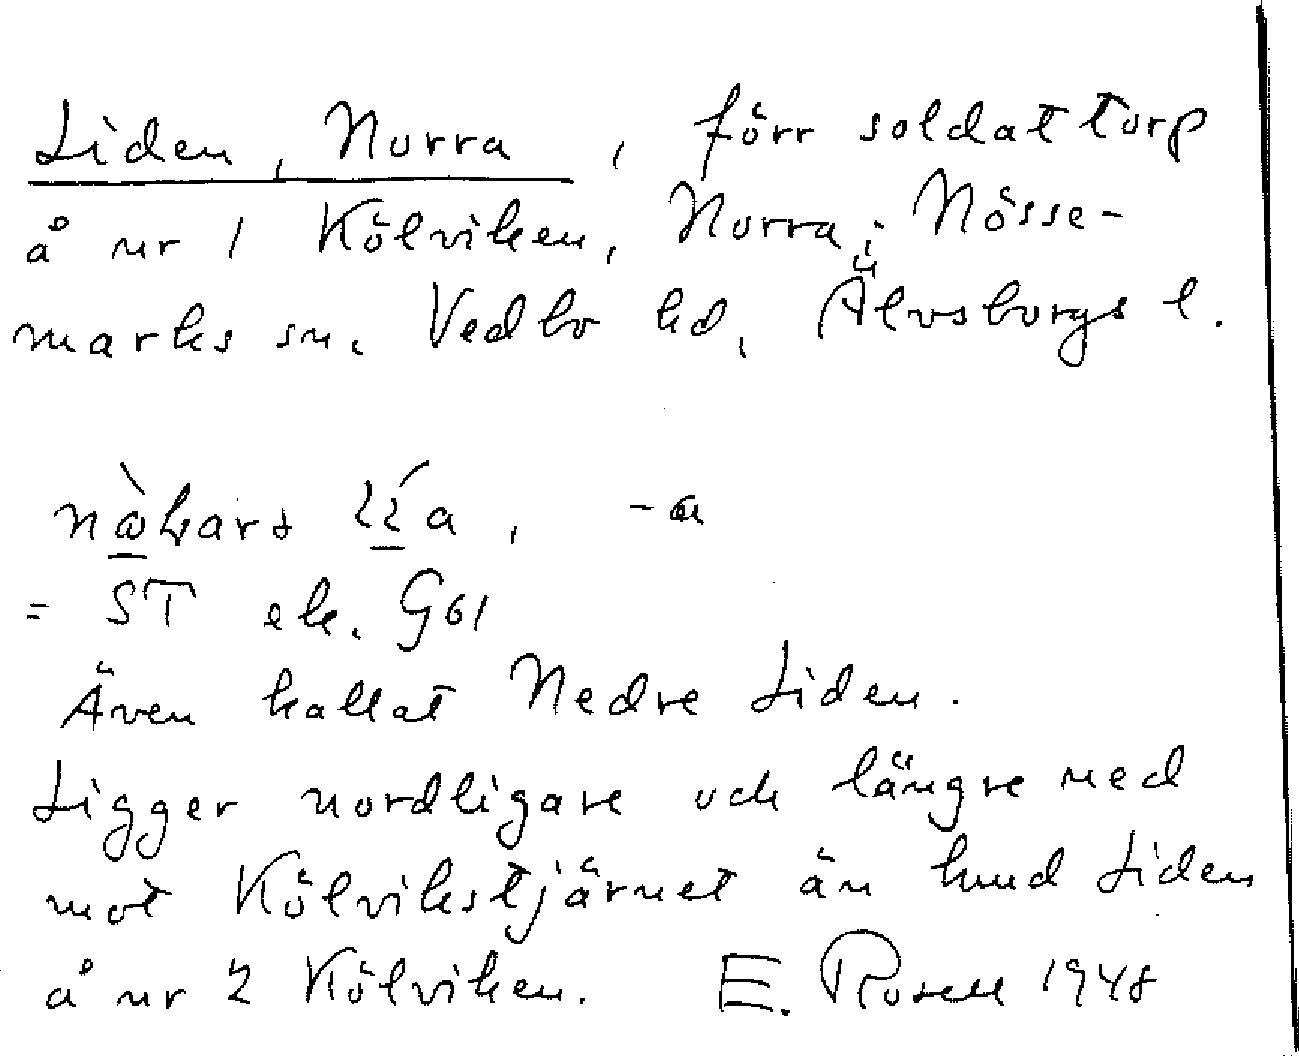 Liden, Norra, förr soldattorp
å nr 1 Kölviken, Norra i Nösse-
marks sn. Vedbo hd, Älvsborgs l.
= ST ek. G61
Även kallat Nedre Liden.
Ligger nordligare och längre ned
mot Kölvikstjärnet än hmd Liden
å nr 2 Kölviken. E. Rosell 1948